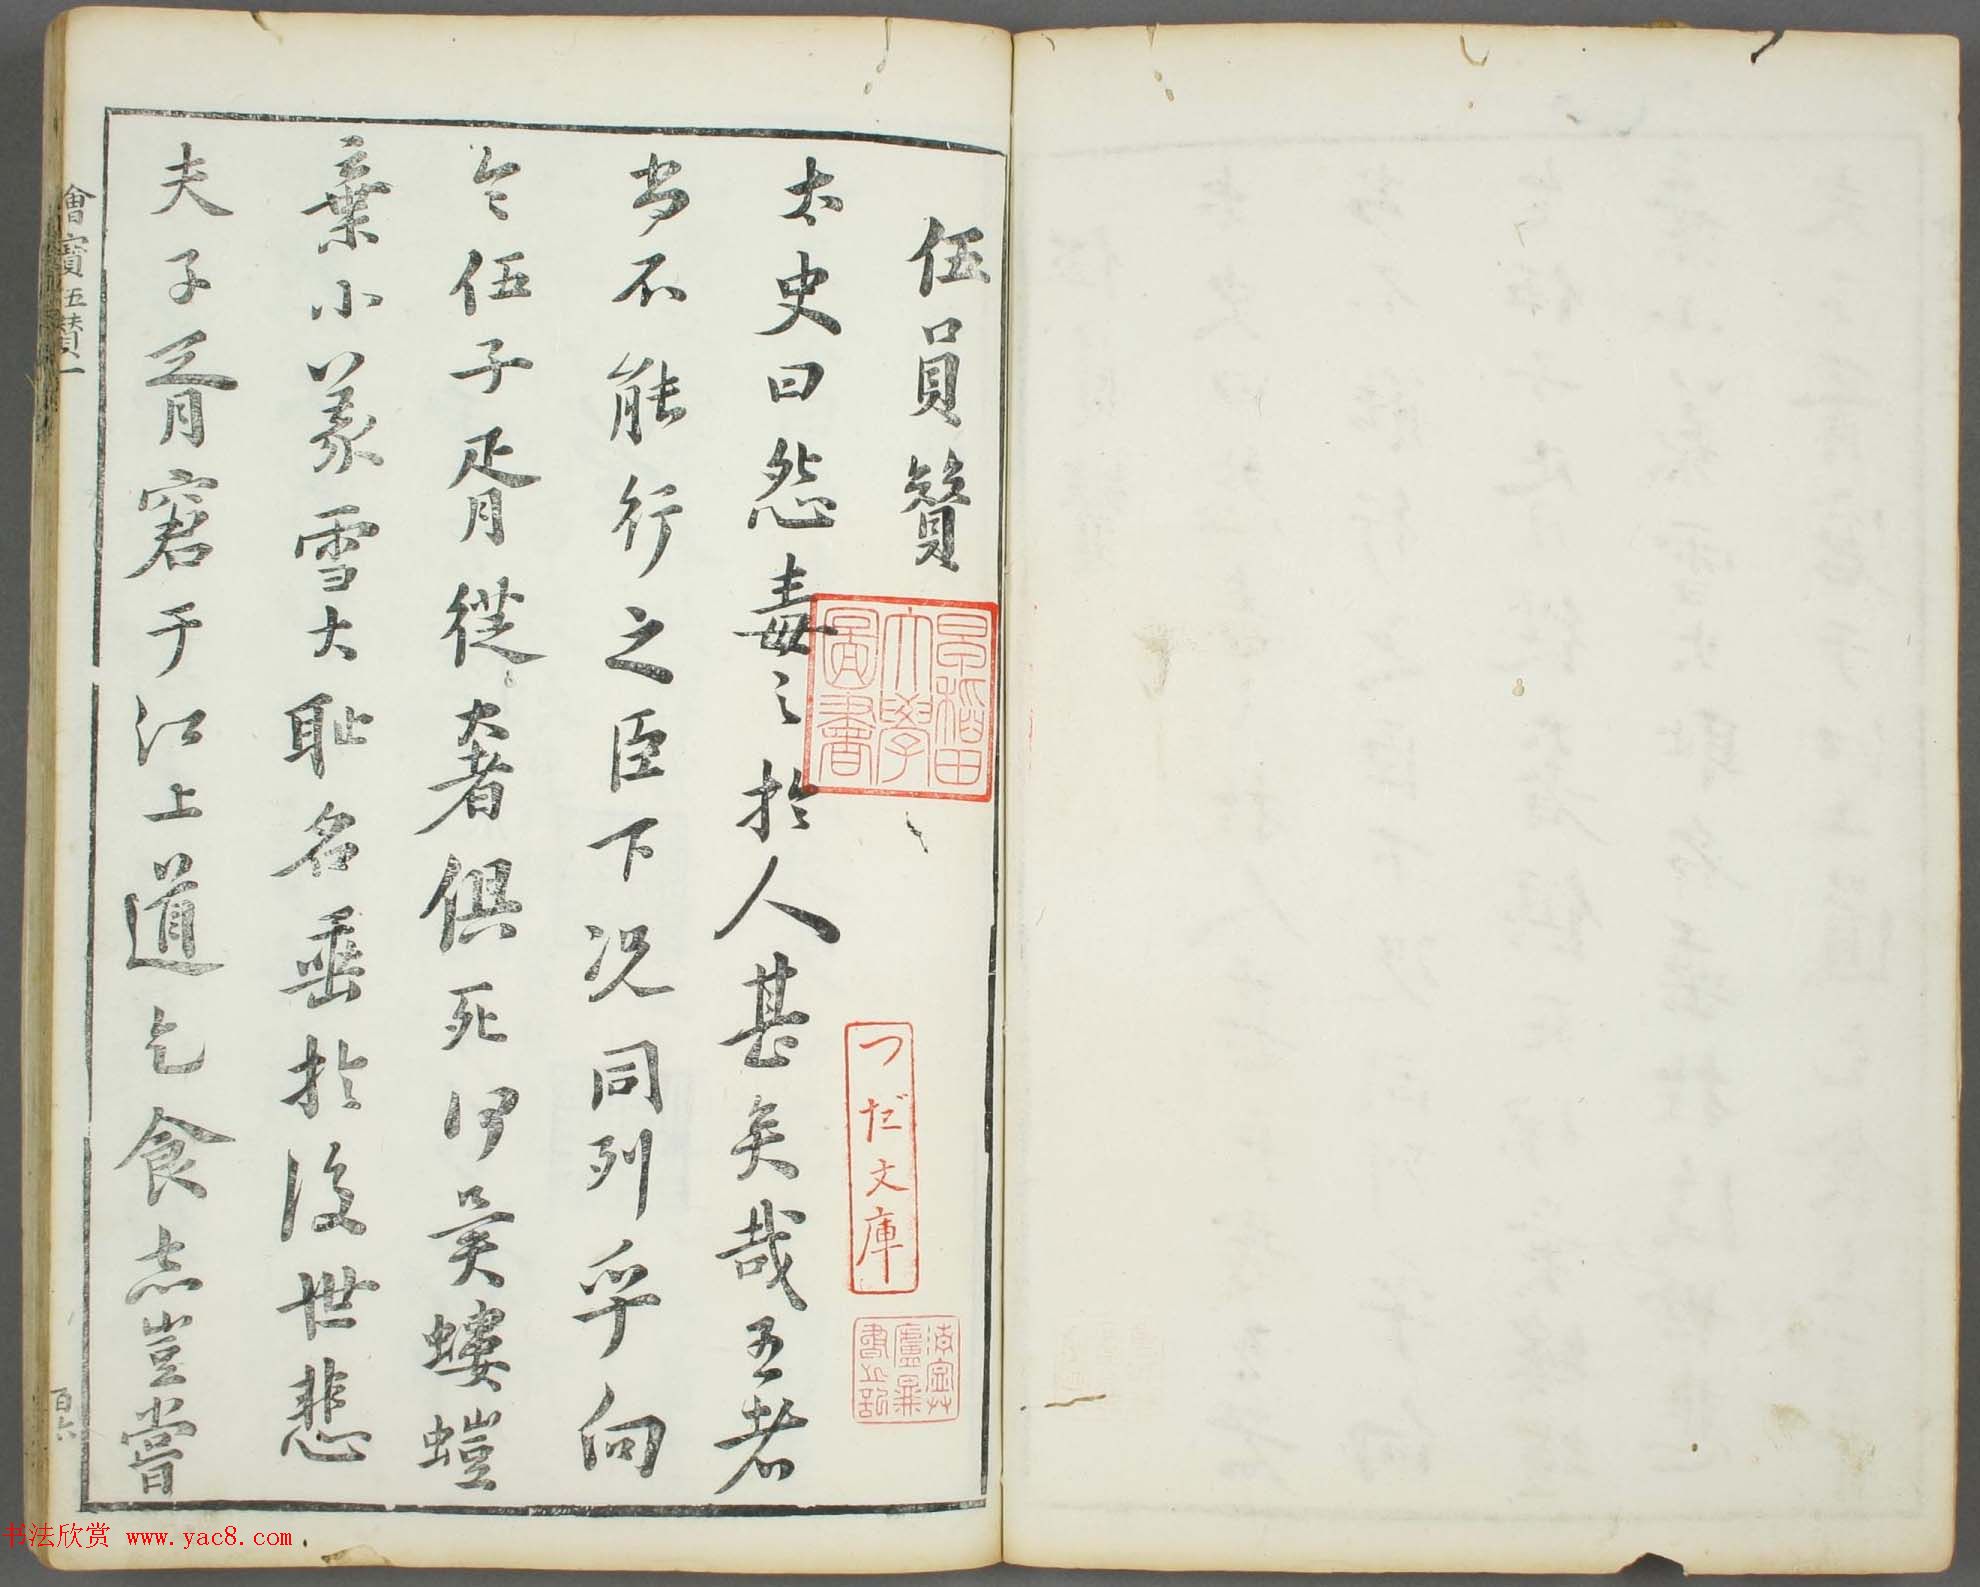 伍員贊
太史曰怨毒之於人甚矣哉王者
尚不能行之臣下況同列乎向
令伍子胥從奢俱死何異螻螘
棄小義雪大恥名垂於後世悲
夫子胥窘于江上道乞食志豈嘗
會寶伍贊一
百六
早稻田
大學
圖書
つだ文庫
书法欣赏 www.yac8.com